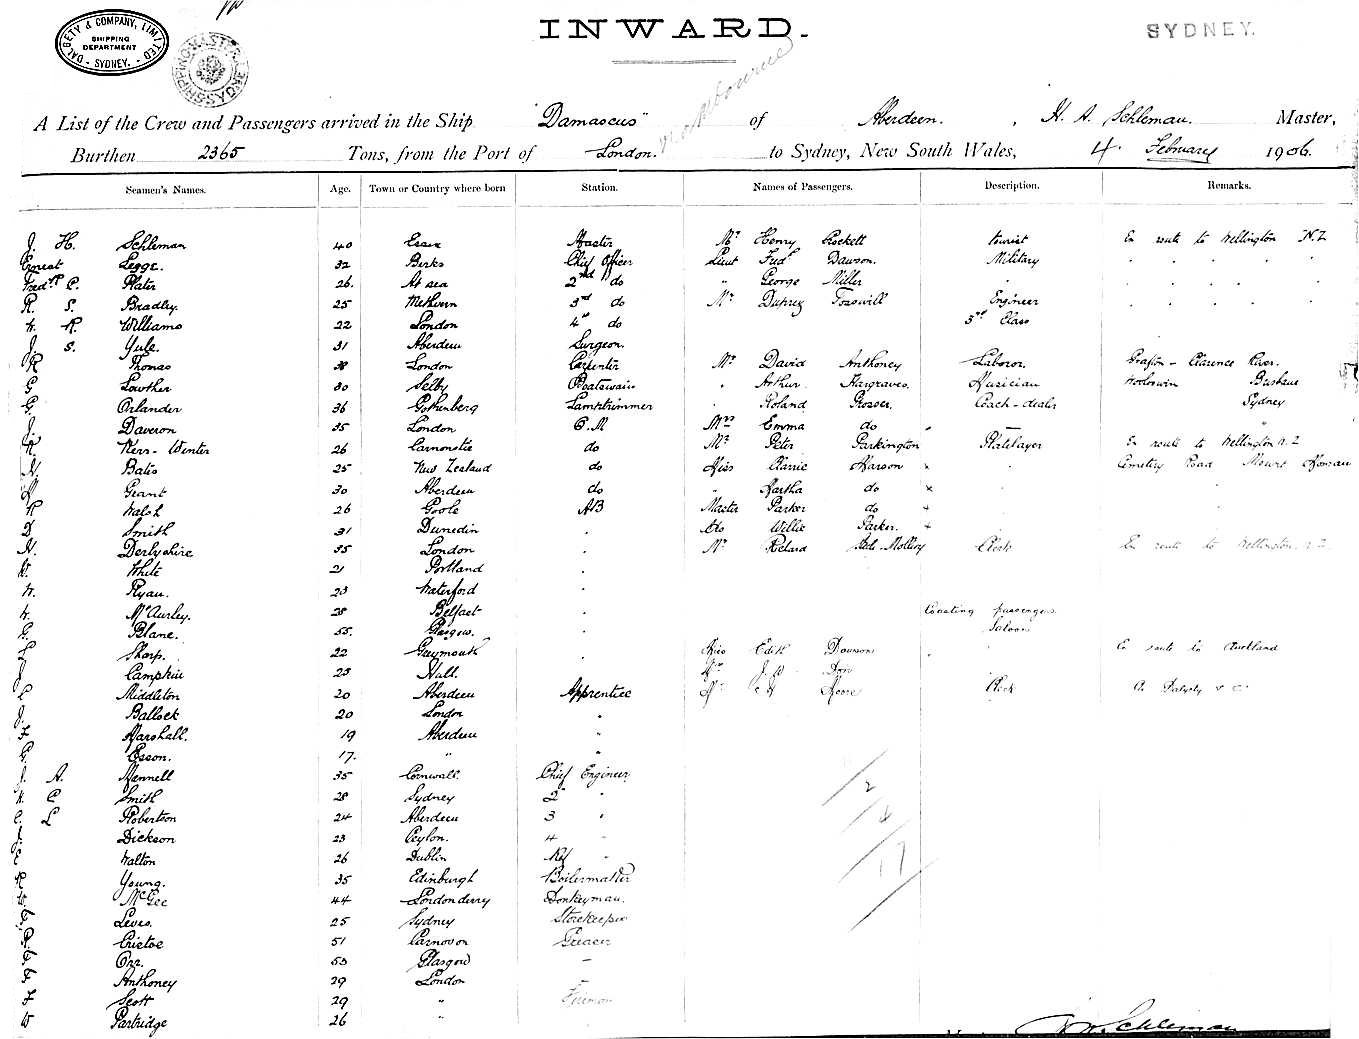 DALGETY & COMPANY, LIMITED
SHIPPING
DEPARTMENT
- SYDNEY. -
INWARD.
SYDNEY.
via Melbourne
A List of the Crew and Passengers arrived in the Ship "Damascus" of Aberdeen, H. A. Schleman Master,
Burthen 2365 Tons, from the Port of London. to Sydney, New South Wales, 4 February 1906.
Seamen's Names. Age. Town or Country where born Station. Names of Passengers. Description. Remarks.
J. H. Schleman 40 Essex Master Mr Henry Rockett tourist En route to Wellington N.Z
Ernest Legge. 32 Berks Chief Officer Lieut Fredk Dawson. Military " " " " "
Fredk C. Plater 26. At sea 2nd do " George Miller " " " " " "
R. S. Bradley. 25 Methven 3rd do Mr Engineer " " " " "
W. R. Williams 22 London 4th do 3rd Class
J. S. Yule. 31 Aberdeen Surgeon.
R Thomas London Carpenter Mr David Anthoney Laborer. Grafton - Clarence River.
G Lowther 30 Selby Boatswain " Arthur Hargraves. Musician Brisbane
G. Orlander 36 Gothenberg Lamptrimmer " Roland Prosser. Coach-dealer Sydney
J. Daveron 35 London Q.M Mrs Emma do " "
R. Kerr-Winter 26 Carnoustie do Mr Peter Parkington Platelayer En route to Wellington N.Z
Batis 25 New Zealand do Miss Carrie Marson x " Cemetery Road
Grant 30 Aberdeen do " Martha do x " "
Walsh 26 Goole AB Master Parker do + "
D Smith 31 Dunedin " do Willie Parker. +
Derbyshire 35 London " Mr Clerk En route to Wellington N.Z.
White 21 Portland "
W. Ryan. 23 Waterford "
W. McAurley. 28 Belfast " Coasting passengers
Blane. 55. Glasgow. " Saloon
Sharp. 22 Greymouth " Miss Edith Dawson " En route to Auckland
Lampkin 23 Hull. Don
Middleton 20 Aberdeen Apprentice Mr Moore Clerk
Ballock 20 London "
Marshall. 19 Aberdeen "
Esson. 17. " "
A. Mennell 35 Cornwall. Chief Engineer
C Smith 28 Sydney 2 "
L Robertson 24 Aberdeen 3 "
Dickson 23 Ceylon. 4 "
Walton 26 Dublin Ref "
Young. 35 Edinburgh Boilermaker
McGee 44 Londonderry Donkeyman.
Leves. 25 Sydney Storekeeper
Cristoe 51 Carnovon Greaser
Orr. 53 Glasgow "
Anthoney 29 London "
Scott 29 " Fireman
Partridge 26 "
2
4
17
Schleman